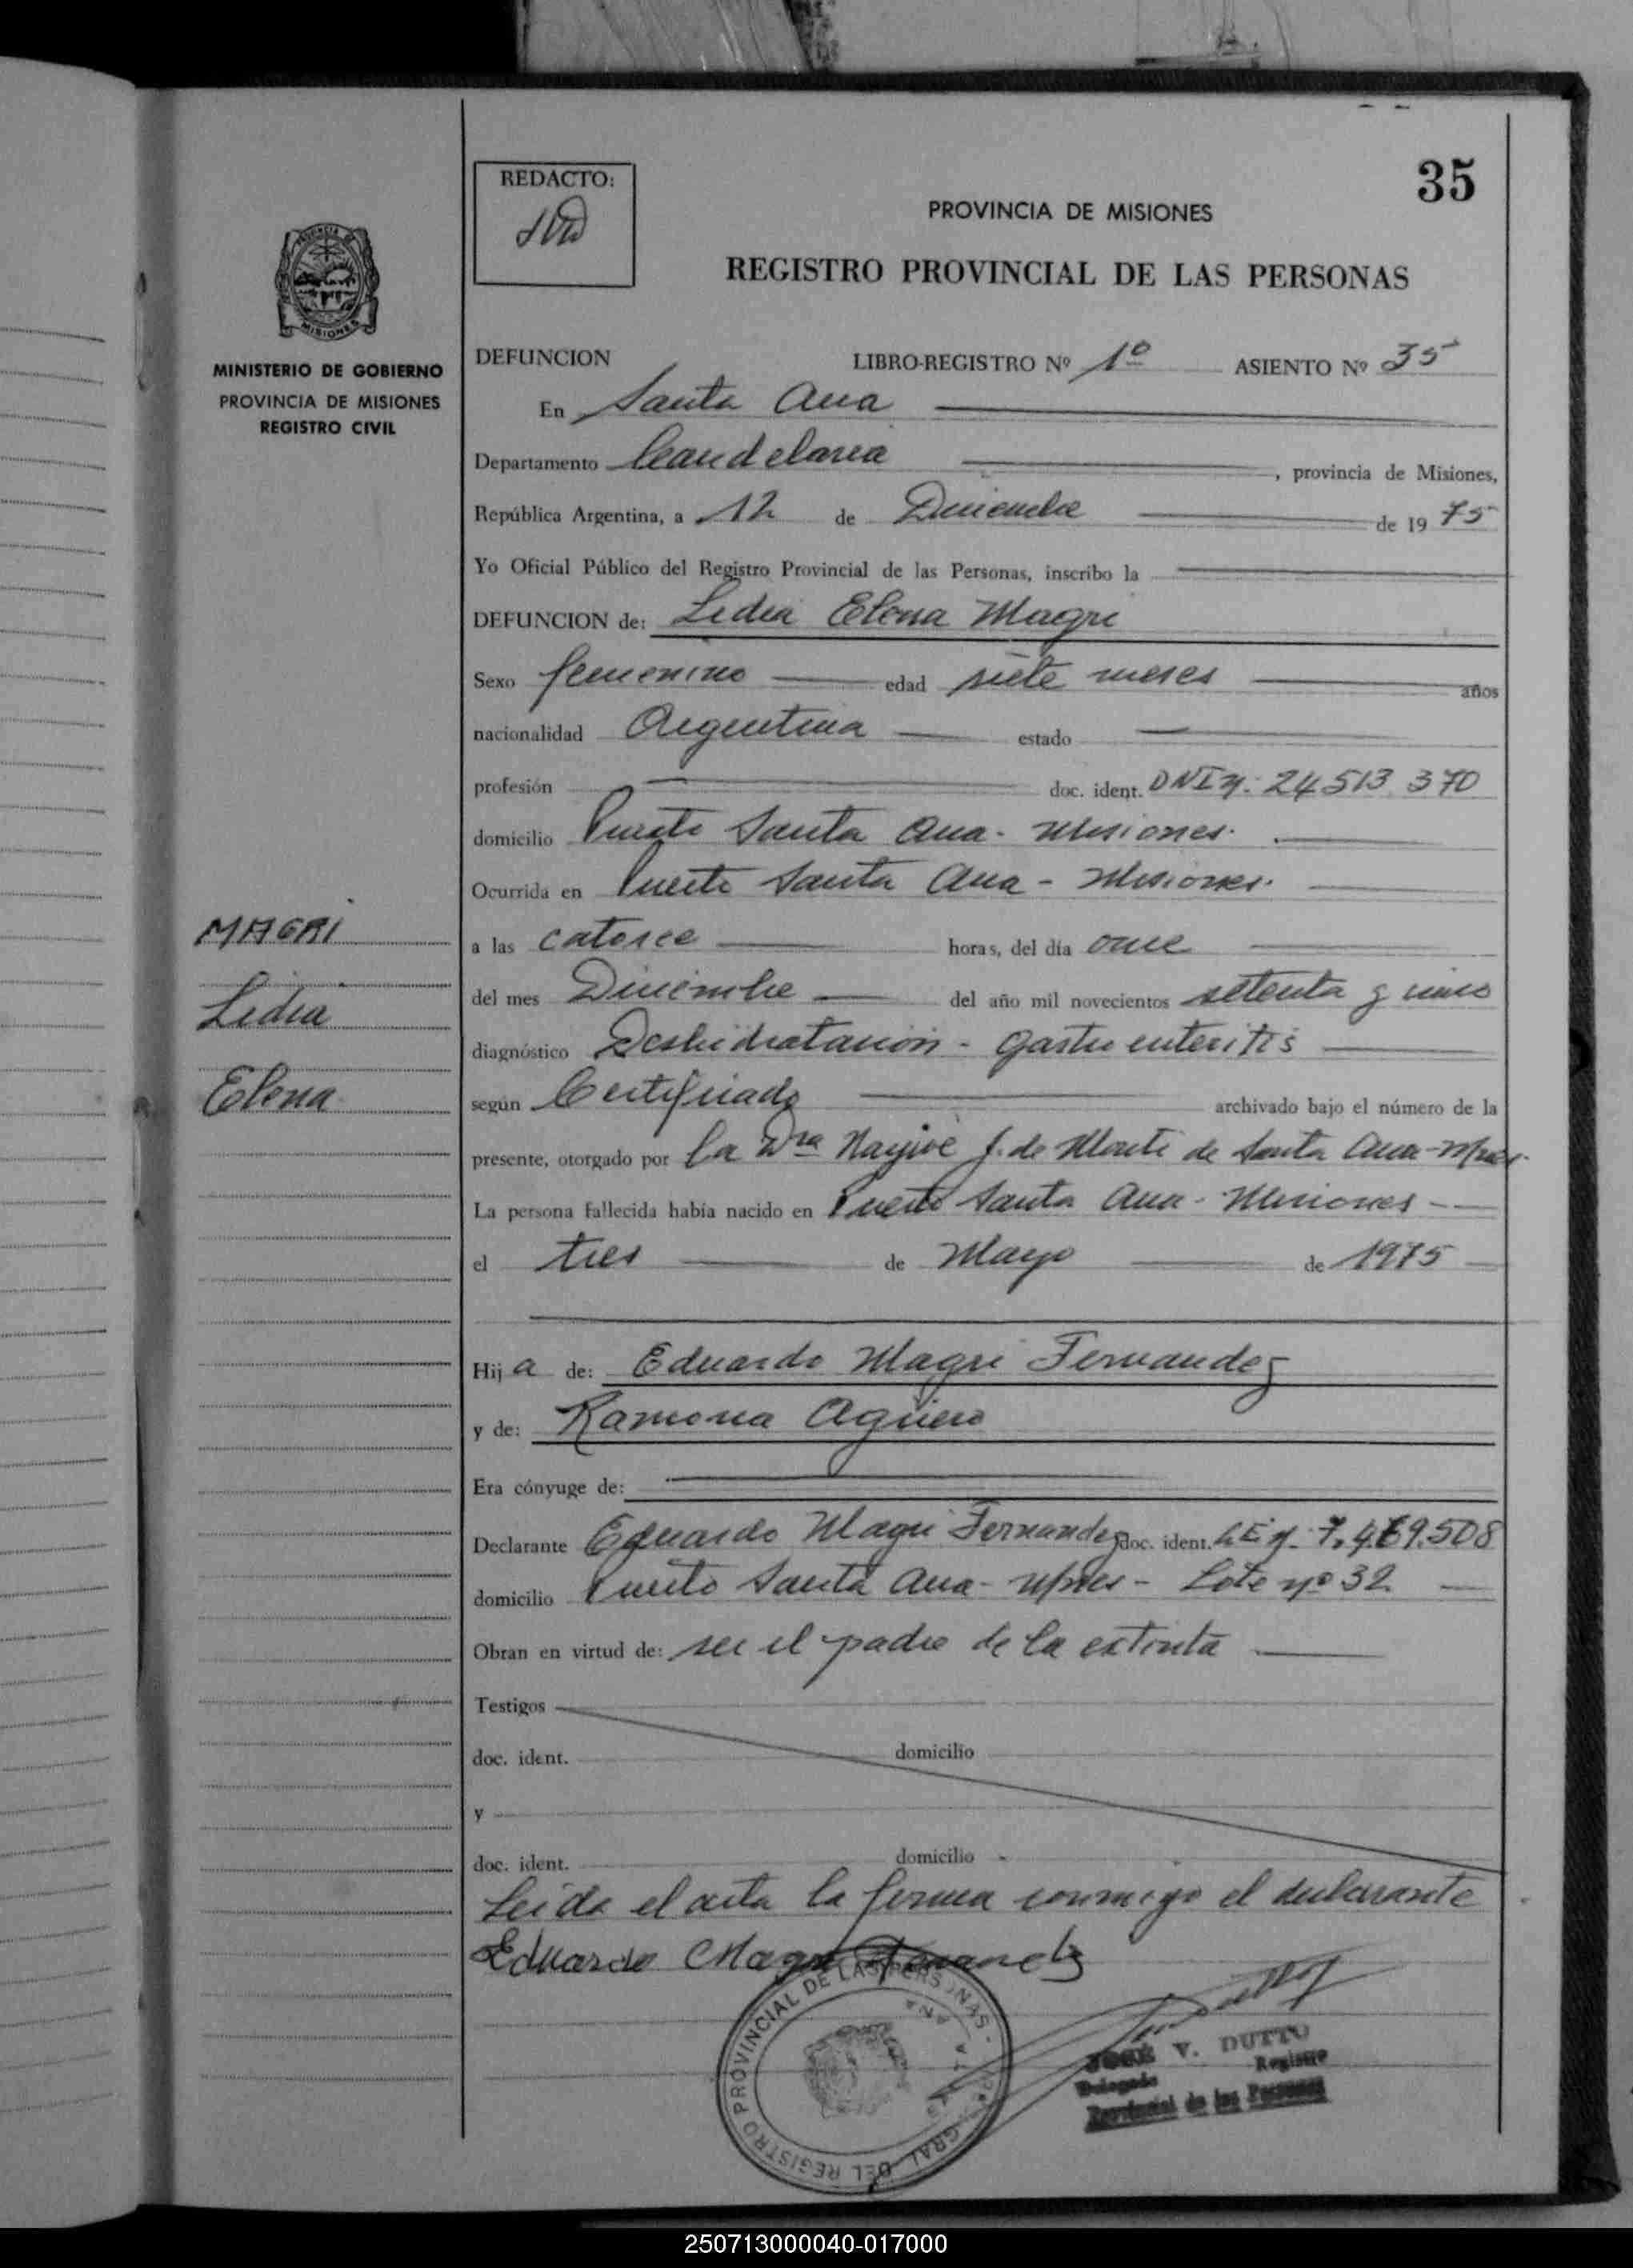 35
REDACTO:
PROVINCIA DE MISIONES
REGISTRO PROVINCIAL DE LAS PERSONAS
MISIONES
MINISTERIO DE GOBIERNO
PROVINCIA DE MISIONES
REGISTRO CIVIL
DEFUNCION LIBRO-REGISTRO Nº 1º ASIENTO Nº 35
En Santa Ana
Departamento Candelaria, provincia de Misiones,
República Argentina, a 12 de Diciembre de 1975
Yo Oficial Público del Registro Provincial de las Personas, inscribo la
DEFUNCION de: Lidia Elena Magri
Sexo femenino edad siete meses años
nacionalidad Argentina estado
profesión doc. ident. DNI Nº. 24 513 370
domicilio Puerto Santa Ana - Misiones.
Ocurrida en Puerto Santa Ana - Misiones.
MAGRI
Lidia
Elena
a las catorce horas, del día once
del mes Diciembre del año mil novecientos setenta y cinco
diagnóstico Deshidratación - gastroenteritis
según Certificado archivado bajo el número de la
presente, otorgado por la Dra J. de Monti de Santa Ana - Mnes.
La persona fallecida había nacido en Puerto Santa Ana - Misiones -
el tres de Mayo de 1975
Hija de: Eduardo Magri Fernandez
y de: Ramona Agüero
Era cónyuge de:
Declarante Eduardo Magri Fernandez doc. ident. LE Nº. 7.469.508
domicilio Puerto Santa Ana - Mnes - Lote Nº 32
Obran en virtud de: ser el padre de la extinta
Testigos
doc. ident. domicilio
y
doc. ident. domicilio
Leída el acta la firma conmigo el declarante
Eduardo Magri Fernandez
REGISTRO PROVINCIAL DE LAS PERSONAS
JOSÉ V. DUTTO
Delegado Registro
Provincial de las Personas
250713000040-017000